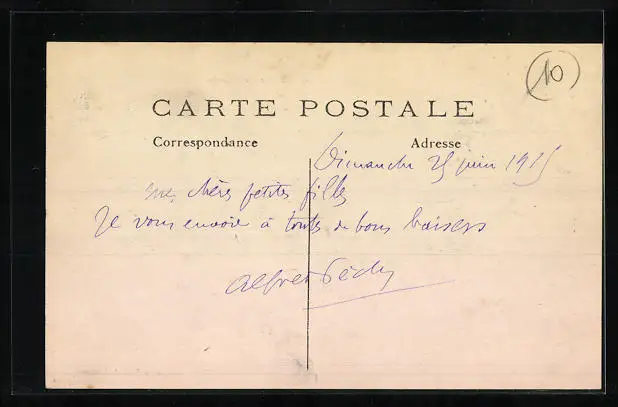 10
CARTE POSTALE
Correspondance
Adresse
Dimanche 25 juin 1915
mes chères petites filles
Je vous envoie à toutes de bons baisers
Alfred